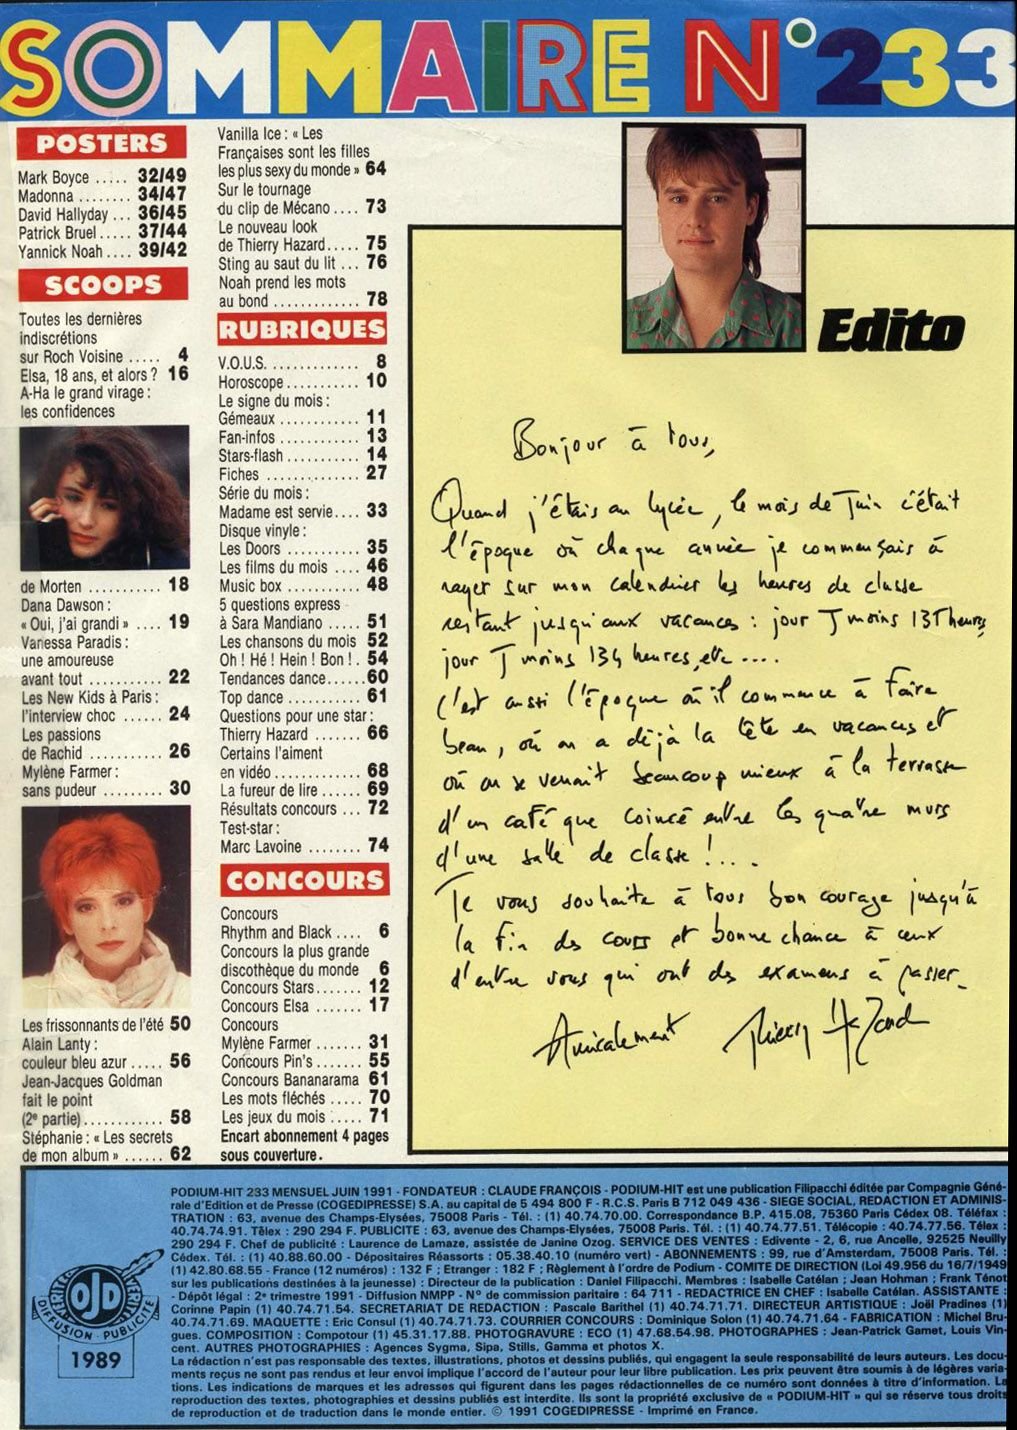 SOMMAIRE N°233
POSTERS
Mark Boyce ..... 32/49
Madonna ........ 34/47
David Hallyday ... 36/45
Patrick Bruel ..... 37/44
Yannick Noah .... 39/42
SCOOPS
Toutes les dernières
indiscrétions
sur Roch Voisine ..... 4
Elsa, 18 ans, et alors ? 16
A-Ha le grand virage :
les confidences
de Morten ........... 18
Dana Dawson :
« Oui, j'ai grandi » .... 19
Vanessa Paradis :
une amoureuse
avant tout ........... 22
Les New Kids à Paris :
l'interview choc ...... 24
Les passions
de Rachid ........... 26
Mylène Farmer :
sans pudeur ......... 30
Les frissonnants de l'été 50
Alain Lanty :
couleur bleu azur ..... 56
Jean-Jacques Goldman
fait le point
(2e partie) ............ 58
Stéphanie : « Les secrets
de mon album » ...... 62
Vanilla Ice : « Les
Françaises sont les filles
les plus sexy du monde » 64
Sur le tournage
du clip de Mécano .... 73
Le nouveau look
de Thierry Hazard ..... 75
Sting au saut du lit ... 76
Noah prend les mots
au bond ............. 78
RUBRIQUES
V.O.U.S. ............. 8
Horoscope ........... 10
Le signe du mois :
Gémeaux ............ 11
Fan-infos ............ 13
Stars-flash ........... 14
Fiches .............. 27
Série du mois :
Madame est servie .... 33
Disque vinyle :
Les Doors ........... 35
Les films du mois .... 46
Music box ........... 48
5 questions express
à Sara Mandiano ..... 51
Les chansons du mois 52
Oh ! Hé ! Hein ! Bon ! . 54
Tendances dance ..... 60
Top dance ........... 61
Questions pour une star :
Thierry Hazard ....... 66
Certains l'aiment
en vidéo ............. 68
La fureur de lire ...... 69
Résultats concours ... 72
Test-star :
Marc Lavoine ........ 74
CONCOURS
Concours
Rhythm and Black .... 6
Concours la plus grande
discothèque du monde 6
Concours Stars ....... 12
Concours Elsa ....... 17
Concours
Mylène Farmer ....... 31
Concours Pin's ....... 55
Concours Bananarama 61
Les mots fléchés ..... 70
Les jeux du mois ..... 71
Encart abonnement 4 pages
sous couverture .
Edito
Bonjour à tous,
Quand j'étais au lycée, le mois de Juin c'était
l'époque où chaque année je commençais à
rayer sur mon calendrier les heures de classe
restant jusqu'aux vacances : jour J moins 135 heures,
jour J moins 134 heures, etc ....
C'est aussi l'époque où il commence à faire
beau, où on a déjà la tête en vacances et
où on se venait beaucoup mieux à la terrasse
d'un café que coincé entre les quatre murs
d'une salle de classe !....
Je vous souhaite à tous bon courage jusqu'à
la fin des cours et bonne chance à ceux
d'entre vous qui ont des examens à passer_
Amicalement Thierry Hazard
OJD
DIFFUSION - PUBLICITE
1989
PODIUM-HIT 233 MENSUEL JUIN 1991 - FONDATEUR : CLAUDE FRANÇOIS - PODIUM-HIT est une publication Filipacchi éditée par Compagnie Géné-
rale d'Edition et de Presse (COGEDIPRESSE) S.A. au capital de 5 494 800 F - R.C.S. Paris B 712 049 436 - SIEGE SOCIAL, REDACTION ET ADMINIS-
TRATION : 63, avenue des Champs-Elysées, 75008 Paris - Tél. : (1) 40.74.70.00. Correspondance B.P. 415.08, 75360 Paris Cédex 08. Téléfax :
40.74.74.91. Télex : 290 294 F. PUBLICITE : 63, avenue des Champs-Elysées, 75008 Paris. Tél. : (1) 40.74.77.51. Télécopie : 40.74.77.56. Télex :
290 294 F. Chef de publicité : Laurence de Lamaze, assistée de Janine Ozog. SERVICE DES VENTES : Edivente - 2, 6, rue Ancelle, 92525 Neuilly
Cédex. Tél. : (1) 40.88.60.00 - Dépositaires Réassorts : 05.38.40.10 (numéro vert) - ABONNEMENTS : 99, rue d'Amsterdam, 75008 Paris. Tél. :
(1) 42.80.68.55 - France (12 numéros) : 132 F ; Etranger : 182 F ; Règlement à l'ordre de Podium - COMITE DE DIRECTION (Loi 49.956 du 16/7/1949
sur les publications destinées à la jeunesse) : Directeur de la publication : Daniel Filipacchi. Membres : Isabelle Catélan ; Jean Hohman ; Frank Ténot
- Dépôt légal : 2e trimestre 1991 - Diffusion NMPP - N° de commission paritaire : 64 711 - REDACTRICE EN CHEF : Isabelle Catélan. ASSISTANTE :
Corinne Papin (1) 40.74.71.54. SECRETARIAT DE REDACTION : Pascale Barithel (1) 40.74.71.71. DIRECTEUR ARTISTIQUE : Joël Pradines (1)
40.74.71.69. MAQUETTE : Eric Consul (1) 40.74.71.73. COURRIER CONCOURS : Dominique Solon (1) 40.74.71.64 - FABRICATION : Michel Bru-
gues. COMPOSITION : Compotour (1) 45.31.17.88. PHOTOGRAVURE : ECO (1) 47.68.54.98. PHOTOGRAPHES : Jean-Patrick Gamet, Louis Vin-
cent. AUTRES PHOTOGRAPHIES : Agences Sygma, Sipa, Stills, Gamma et photos X.
La rédaction n'est pas responsable des textes, illustrations, photos et dessins publiés, qui engagent la seule responsabilité de leurs auteurs. Les docu-
ments reçus ne sont pas rendus et leur envoi implique l'accord de l'auteur pour leur libre publication. Les prix peuvent être soumis à de légères varia-
tions. Les indications de marques et les adresses qui figurent dans les pages rédactionnelles de ce numéro sont données à titre d'information. La
reproduction des textes, photographies et dessins publiés est interdite. Ils sont la propriété exclusive de « PODIUM-HIT » qui se réserve tous droits
de reproduction et de traduction dans le monde entier. © 1991 COGEDIPRESSE - Imprimé en France.